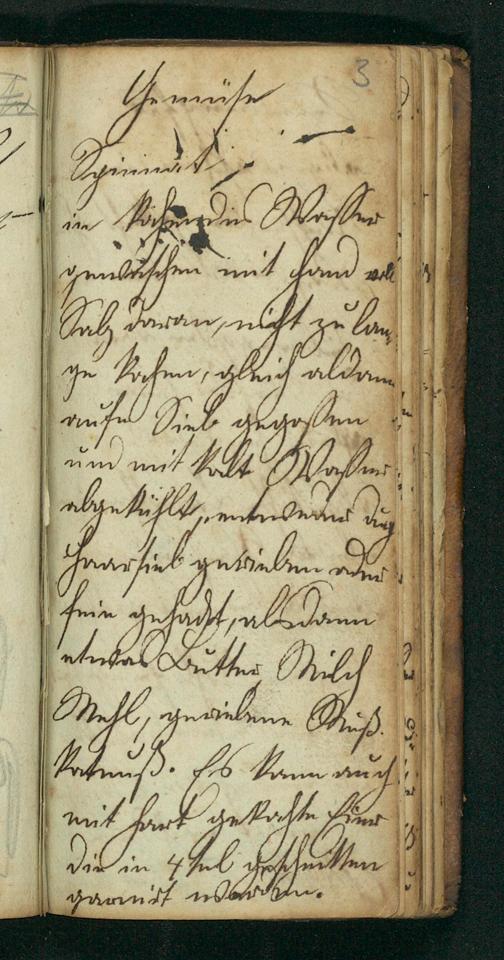 3
Gemüse
Spinnat.
in kochendes Wasser
gewaschen mit Hand voll
Salz daran, nicht zu lan-
ge kochen, gleich aldann
aufn Sieb gegossen
und mit kalt Wasser
abgekühlt, entweder durch
Haarsieb gerieben oder
fein gehackt, alsdann
etwas Butter, Milch
Mehl, geriebene Muß-
katnuß. Es kann auch
mit hart gekochte Eier
die in 4tel geschnitten
garnirt werden.